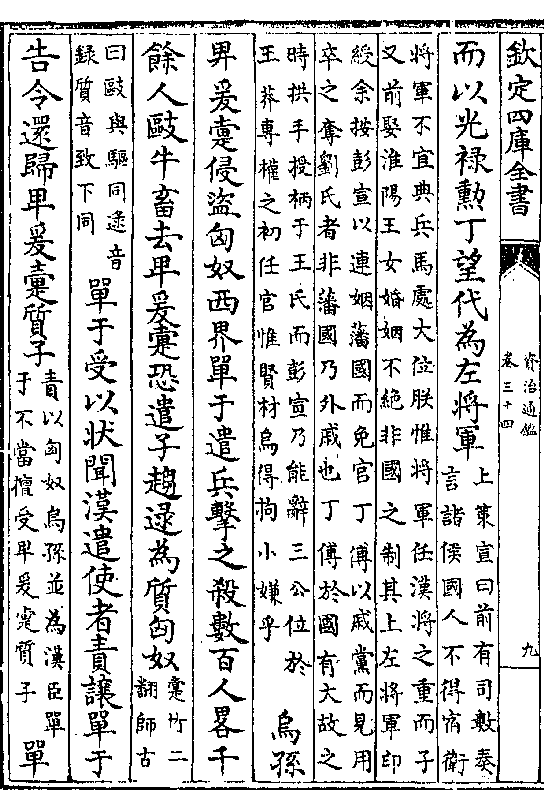 欽定四庫全書
資治通鑑
卷三十四
九
而以光祿勲丁望代為左將軍
上策宣曰前有司數奏
言諸侯國人不得宿衛
將軍不宜典兵馬處大位朕惟將軍任漢將之重而子
又前娶淮陽王女婚姻不絶非國之制其上左將軍印
綬余按彭宣以連姻藩國而免官丁傅以戚黨而見用
卒之奪劉氏者非藩國乃外戚也丁傅於國有大故之
時拱手授柄于王氏而彭宣乃能辭三公位於
王莽專權之初任官惟賢材烏得拘小嫌乎
烏孫
卑爰疐侵盜匈奴西界單于遣兵擊之殺數百人畧千
餘人敺牛畜去卑爰疐恐遣子趨逯為質匈奴
疐竹二
翻師古
曰敺與驅同逯音
録質音致下同
單于受以狀聞漢遣使者責讓單于
告令還歸卑爰疐質子
責以匈奴烏孫並為漢臣單
于不當擅受卑爰疐質子
單